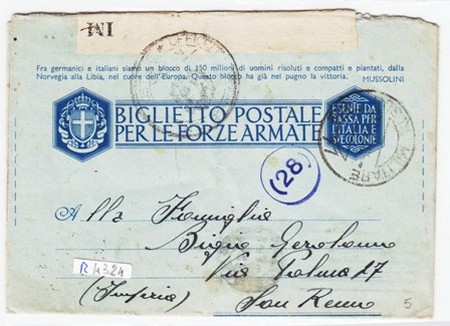 INI
Fra germanici e italiani siamo un blocco di 150 milioni di uomini risoluti e compatti e piantati, dalla
Norvegia alla Libia, nel cuore dell'Europa. Questo blocco ha già nel pugno la vittoria. MUSSOLINI
BIGLIETTO POSTALE
PER LE FORZE ARMATE
ESENTE DA
TASSA PER
L'ITALIA E
SUE COLONIE
MILITARE
(28)
Alla Famiglia
Bigio Gerolamo
Via Palma 27
R 4324
(Imperia)
San Remo
5